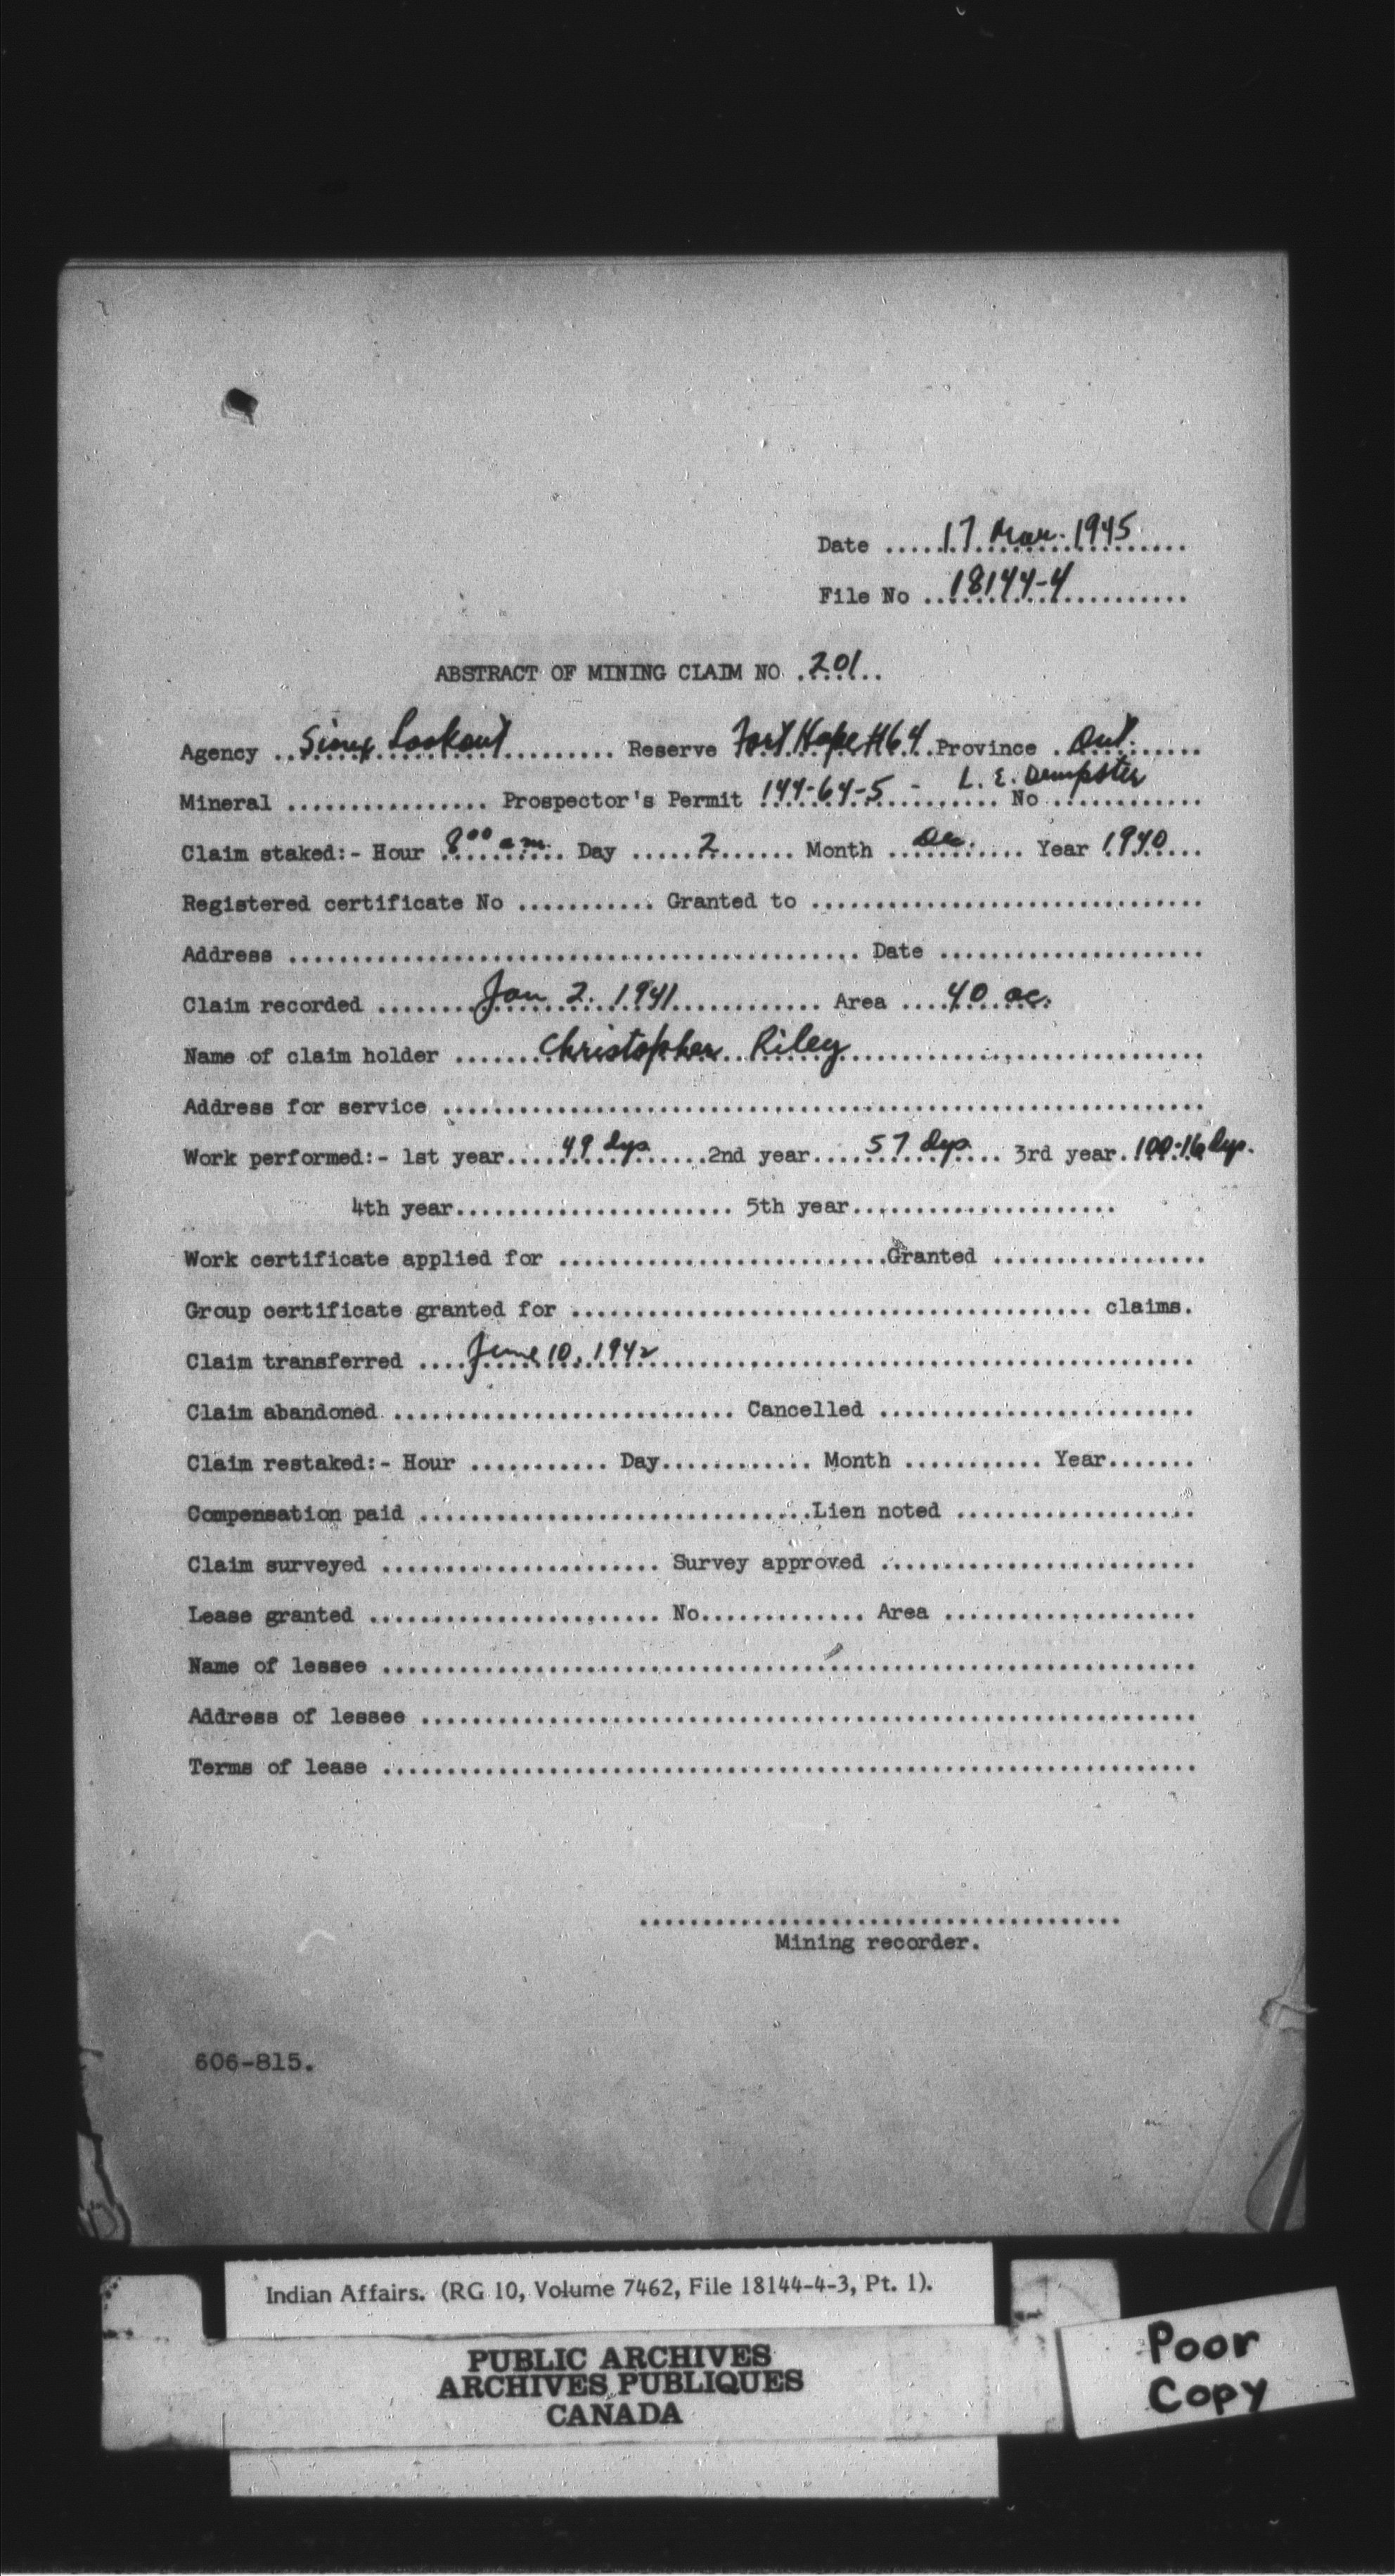 Date .....17 Mar. 1945.....
File No ..18144-4..........
ABSTRACT OF MINING CLAIM NO .201...
Agency ..Sioux Lookout......... Reserve Fort Hope #64..Province .Ont......
Mineral ................ Prospector's Permit 144-64-5 - L. E. Dempster No ............
Claim staked:- Hour 8⁰⁰ a.m. Day .....2....... Month ..Dec....... Year 1940...
Registered certificate No ........... Granted to ...............................
Address ............................................. Date .....................
Claim recorded ........Jan 2. 1941............ Area ....40 ac.
Name of claim holder .......Christopher Riley............................
Address for service ............................................................
Work performed:- 1st year....49 dys......2nd year....57 dys.... 3rd year.100-16 dys.
4th year...................... 5th year.....................
Work certificate applied for ..........................Granted .................
Group certificate granted for ......................................... claims.
Claim transferred ....June 10, 1942..........................................
Claim abandoned ........................... Cancelled .........................
Claim restaked:- Hour ........... Day............ Month ........... Year.......
Compensation paid ...............................Lien noted ...................
Claim surveyed ...................... Survey approved .........................
Lease granted ....................... No............. Area ....................
Name of lessee ................................................................
Address of lessee .............................................................
Terms of lease ................................................................
......................................
Mining recorder.
606-815.
Indian Affairs. (RG 10, Volume 7462, File 18144-4-3, Pt. 1).
PUBLIC ARCHIVES
ARCHIVES PUBLIQUES
CANADA
Poor
Copy